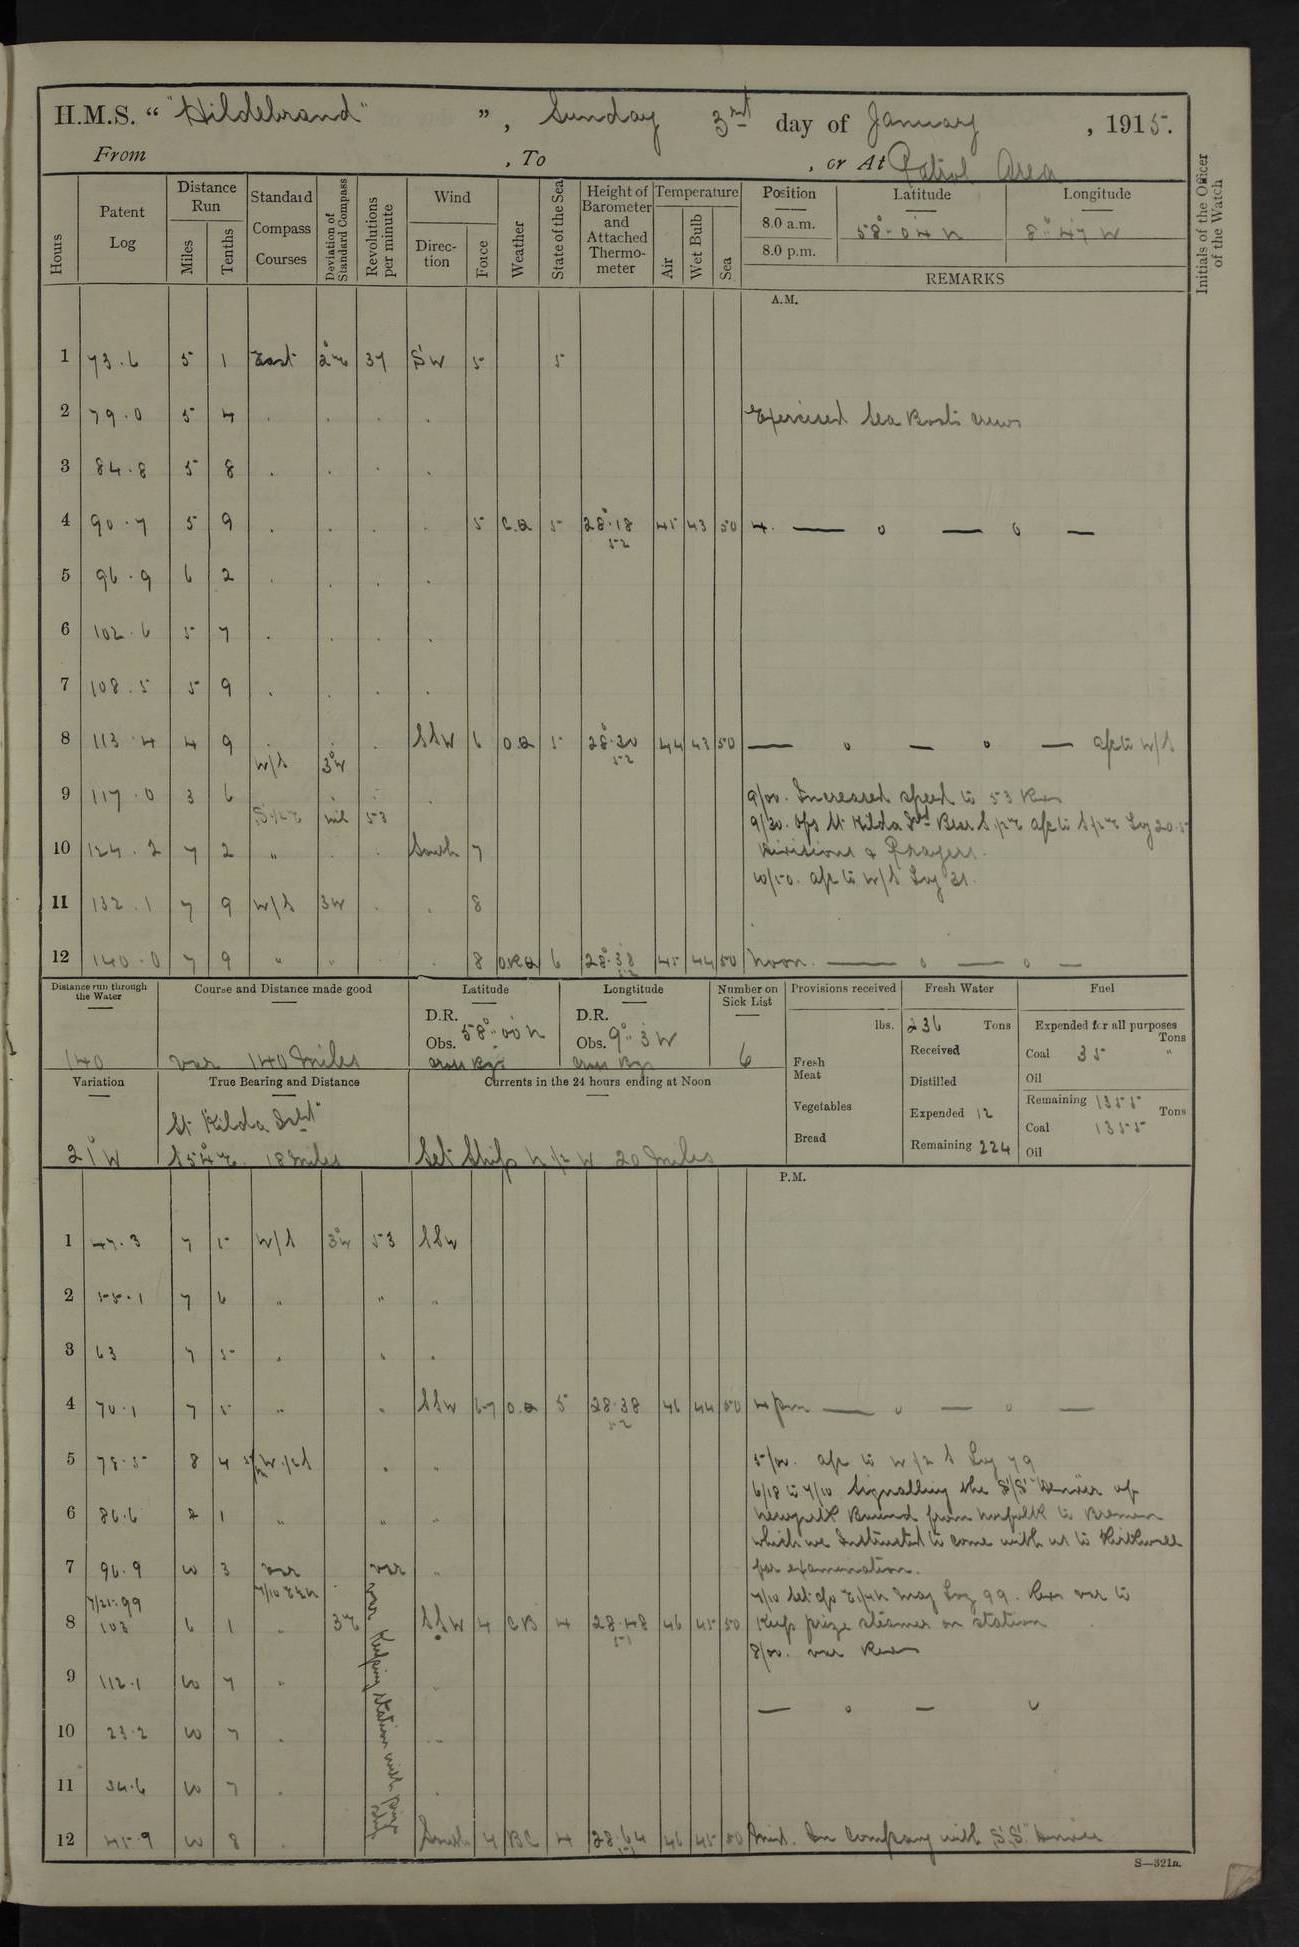 H.M.S. “ "Hildebrand" ” , Sunday 3rd day of January , 1915.
From , To , or At Patrol Area
Hours
Patent Log
Distance Run
Miles
Tenths
Standard Compass Courses
Deviation of Standard Compass
Revolutions per minute
Wind
Direction
Force
Weather
State of the Sea
Height of Barometer and Attached Thermometer
Temperature
Air
Wet Bulb
Sea
Position
Latitude
Longitude
8.0 a.m. 58° 04 N 8° 47 W
8.0 p.m.
REMARKS
Initials of the Officer of the Watch
A.M.
1 73.6 5 1 East 2°E 37 SW 5 5
2 79.0 5 4 . . . . Exercised Sea Boats crews
3 84.8 5 8 . . . .
4 90.7 5 9 . . . . 5 5 28.18 52 45 43 50 4. — o — o —
5 96.9 6 2 . . . .
6 102.6 5 7 . . . .
7 108.5 5 9 . . . .
8 113.4 4 9 . . . SSW 6 5 28.30 52 44 43 50 — o — o — a/c to W/S
W/S 3°W
9 117.0 3 6 . . . 9/00. Increased speed to 53 Revs
nil 53 9/30. St Kilda Isld Bear
10 124.2 7 2 " . . South 7 Divisions & Prayers.
10/50. a/c to W/S Log 31.
11 132.1 7 9 W/S 3W . . 8
12 140.0 7 9 " " . . 8 6 28.38 52 45 44 50 Noon. — o — o —
Distance run through the Water
140
Course and Distance made good
var 140 Miles
Latitude
D.R.
Obs. 58° 00 N
Cross Bgs
Longtitude
D.R.
Obs. 9° 3 W
Cross Bgs
Number on Sick List
6
Provisions received
lbs.
Fresh Meat
Vegetables
Bread
Fresh Water
236 Tons
Received
Distilled
Expended 12
Remaining 224
Fuel
Expended for all purposes
Tons
Coal 35 "
Oil
Remaining 1355 Tons
Coal 1355
Oil
Variation
21°W
True Bearing and Distance
St Kilda Isld
S54°E 18 Miles
Currents in the 24 hours ending at Noon
Set Ship N/2 W 20 Miles
P.M.
1 47.3 7 5 W/S 3°W 53 SSW
2 55.1 7 6 " " "
3 63 7 5 " " "
4 70.1 7 5 " " SSW 6-7 5 28.38 52 46 44 50 4 pm — o — o —
5 78.5 8 4 W/2S " " 5/00. a/c to W/2 S Log 79
6/18 to 7/10 Signalling the S/S "Denver" of
6 86.6 1 " " " Newyork Bound from Norfolk to Bremen
which we Instructed to come with us to Kirkwall
7 96.9 10 3 var var " for examination.
7/10 7/10 Log 99. Revs var to
7/21.99
8 103 6 1 " 3E SSW 4 4 28.48 51 46 45 50 Keep prize steamer on station
8/00. var Revs
9 112.1 10 7 " " — o — o
10 23.2 10 7 . "
11 34.6 10 7 . .
12 45.9 10 8 . South 4 BC 4 28.64 51 46 45 50 Mid. In Company with S.S. "Denver"
var Keeping Station with prize ship
S—321a.